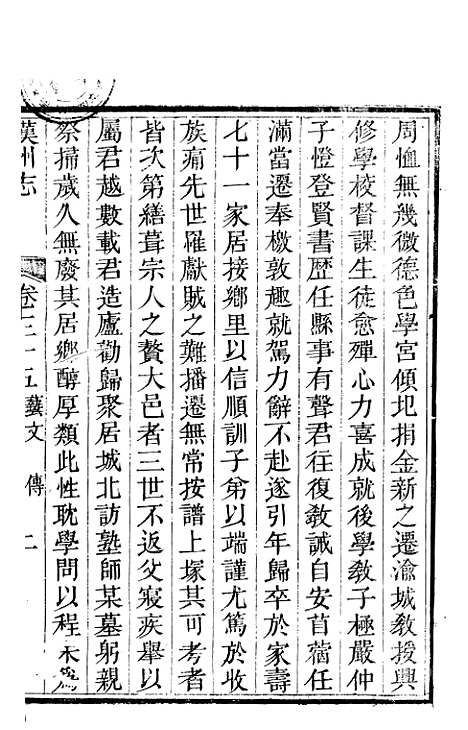 周恤無幾微德色學宮傾圯捐金新之遷渝城教授興
修學校督課生徒愈殫心力喜成就後學教子極嚴仲
子憕登賢書歷任縣事有聲君往復教誡自安苜蓿任
滿當遷奉檄敦趣就駕力辭不赴遂引年歸卒於家壽
七十一家居接鄉里以信順訓子弟以端謹尤篤於收
族痛先世罹獻賊之難播遷無常按譜上塚其可考者
皆次第繕葺宗人之贅大邑者三世不返父寢疾舉以
屬君越數載君造廬勸歸聚居城北訪塾師某墓躬親
祭掃歲久無廢其居鄉醇厚類此性耽學問以程朱為
漢州志 卷三十五藝文 傳 二